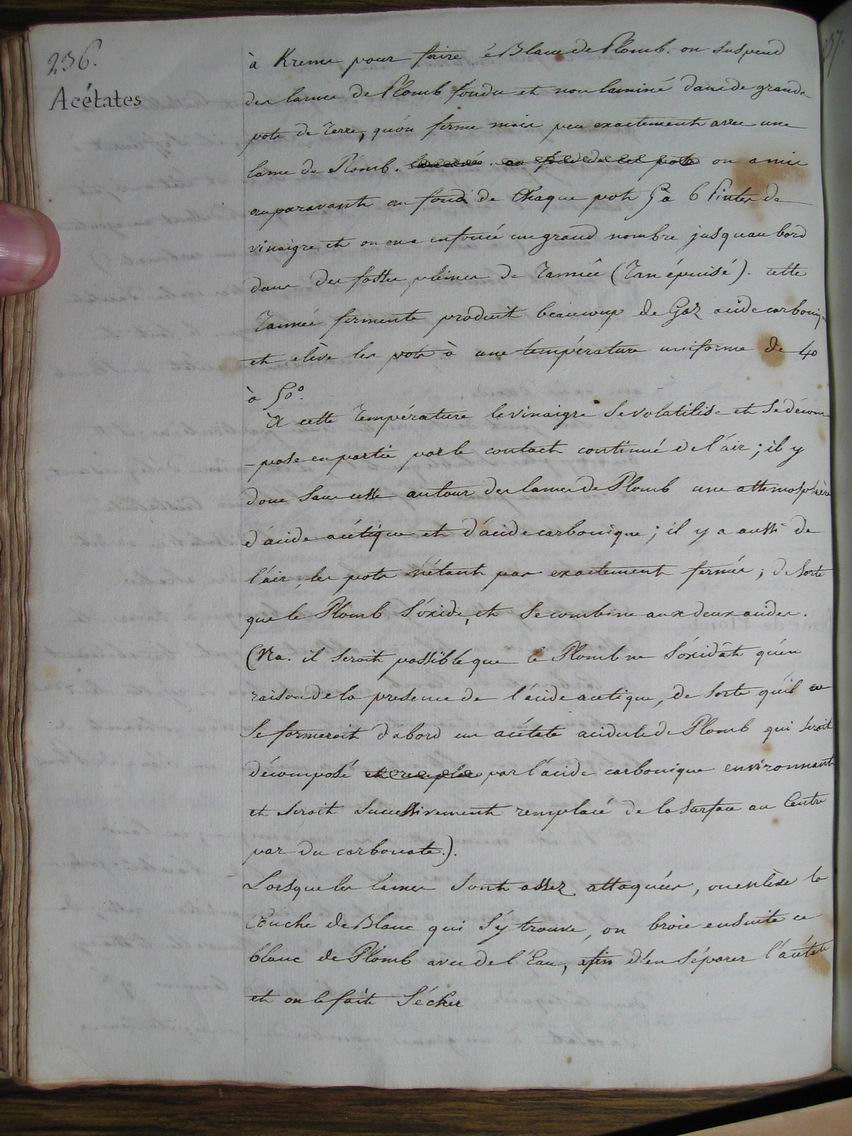 236.
Acétates
à Krems pour faire le Blanc de Plomb. on suspend
des lames de Plomb fondu et non laminé dans de grands
pots de Terre, qu'on ferme mais peu exactement avec une
lame de Plomb. on a mis
auparavant au fond de chaque pots 5 à 6 Pintes de
vinaigre et on en a enfoncé un grand nombre jusqu'au bord
dans des fosses pleines de Tannée (Tan épuisé). cette
Tannée fermente produit beaucoup de Gaz acide carboniq
et élève les pots à une température uniforme de 40
à 50°.
A cette Température le vinaigre se volatilise et se décom
-pose en partie par le contact continué de l'air ; il y
donc sans cesse autour des lames de Plomb une athmosphère
d'acide acétique et d'acide carbonique ; il y a aussi de
l'air, les pots n'étant pas exactement fermés ; de sorte
que le Plomb s'oxide, et se combine aux deux acides.
(Na. il seroit possible que le Plomb ne s'oxidât qu'en
raison de la presence de l'acide acetique, de sorte qu'il
se formeroit d'abord un acétate acidule de Plomb qui seroit
décomposé par l'acide carbonique environnant
et seroit successivement remplacé de la surface au Centre
par du carbonate.).
Lorsque les lames sont assez attaquées, on enlève la
Couche de Blanc qui s'y trouve, on broie ensuite ce
blanc de Plomb avec de l'Eau, afin d'en séparer l'acétate
et on le fait sécher